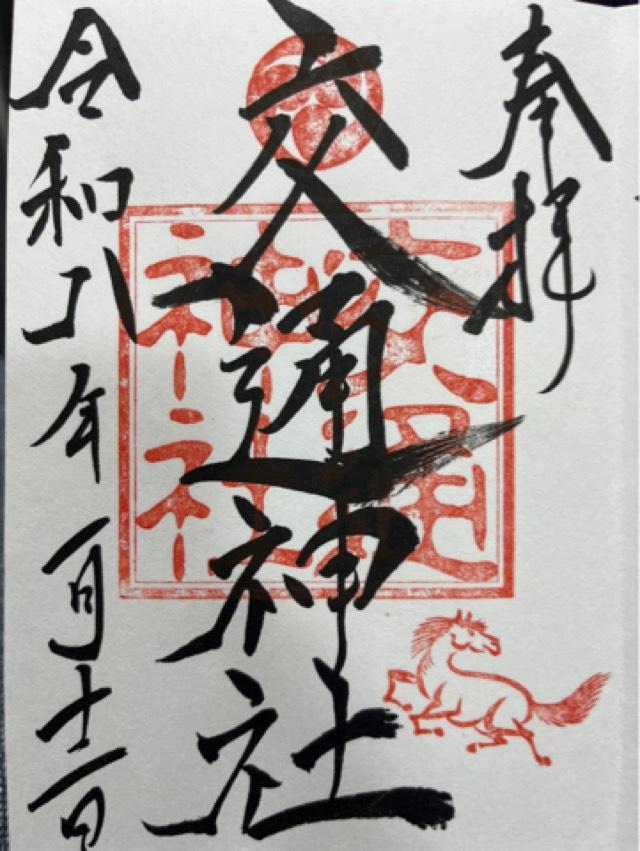 奉拝
交通神社
交通
神社
令和八年一月十二日